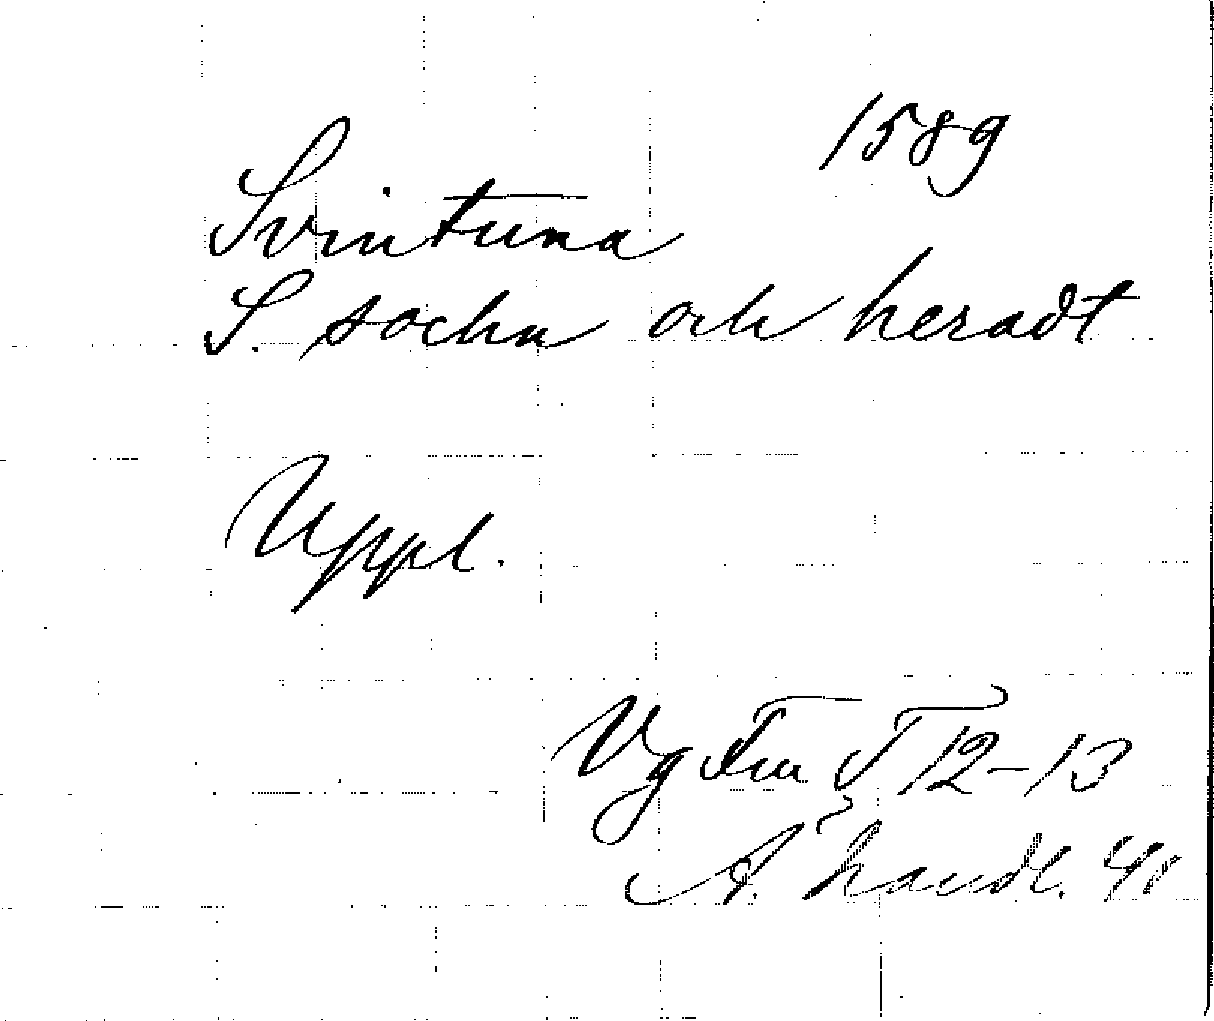 1589
Svintuna
S. sochn och heradt
Uppl.
Vg Fm T 12-13
A. handl. 41